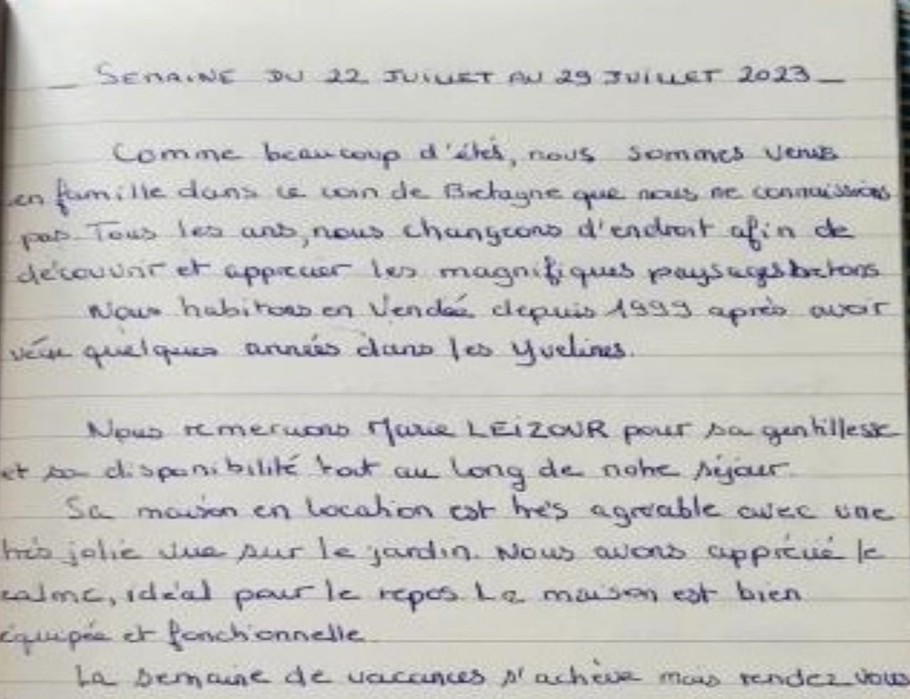 _ SEMAINE DU 22 JUILLET AU 29 JUILLET 2023 _
Comme beaucoup d'étés, nous sommes venus
en famille dans ce coin de Bretagne que nous ne connaissions
pas. Tous les ans, nous changeons d'endroit afin de
découvrir et apprécier les magnifiques paysages bretons
Nous habitons en Vendée depuis 1999 après avoir
vécu quelques années dans les Yvelines.
Nous remercions Marie LEIZOUR pour sa gentillesse
et sa disponibilité tout au long de notre séjour.
Sa maison en location est très agréable avec une
très jolie vue sur le jardin. Nous avons apprécié le
calme, idéal pour le repos. La maison est bien
équipée et fonctionnelle.
La semaine de vacances s'achève mais rendez vous